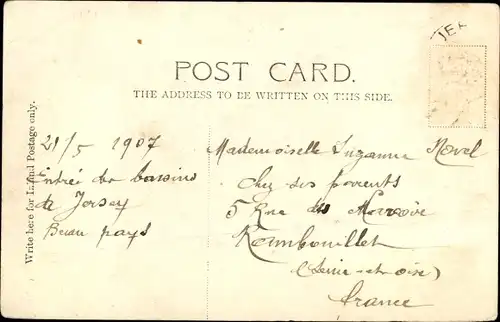 JER
POST CARD.
THE ADDRESS TO BE WRITTEN ON THIS SIDE.
Write here for Inland Postage only.
21/5 1907
Entrée des bassins
à Jersey
Beau pays
Mademoiselle Suzanne Novel
Chez ses parents
5 Rue des
Rambouillet
(Seine-et-oise)
France